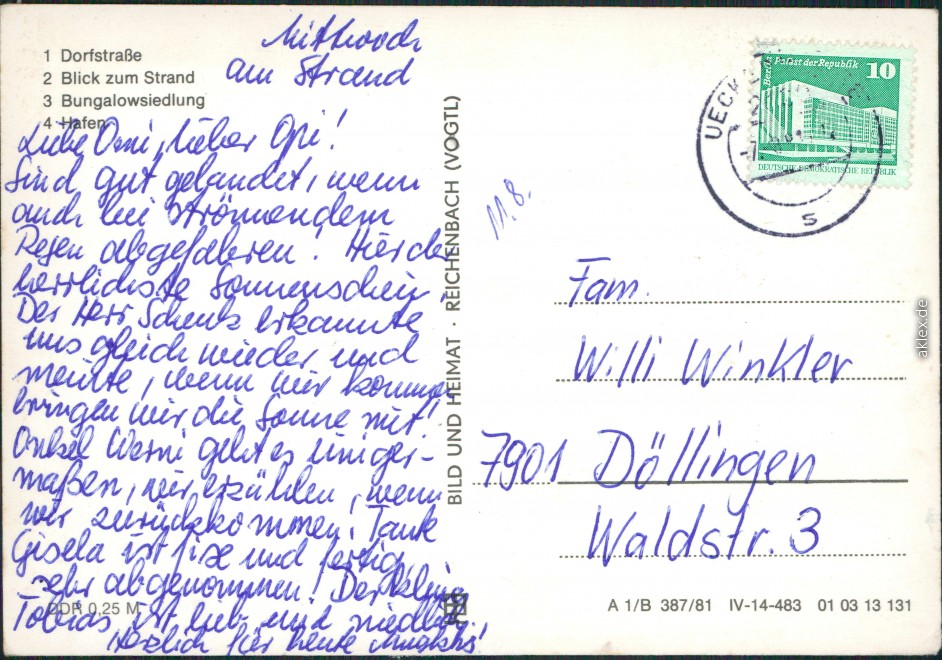 Mittwoch
am Strand
1 Dorfstraße
2 Blick zum Strand
3 Bungalowsiedlung
4 Hafen
Liebe Omi, lieber Opi!
Sind gut gelandet, wenn
auch bei strömendem
Regen abgefahren! Hier der
herrlichste Sonnenschein!
Der Herr Schenk erkannte
uns gleich wieder und
meinte, wenn wir kommen
bringen wir die Sonne mit!
Onkel Werni geht es einiger-
maßen, wir erzählen, wenn
wir zurückkommen! Tante
Gisela ist fix und fertig,
sehr abgenommen! Der kleine
Tobias ist lieb und niedlich!
Herzlich für heute
DDR 0,25 M
BILD UND HEIMAT · REICHENBACH (VOGTL)
11.8.
Berlin Palast der Republik 10
DEUTSCHE DEMOKRATISCHE REPUBLIK
S
Fam.
Willi Winkler
7901 Döllingen
Waldstr. 3
A 1/B 387/81 IV-14-483 01 03 13 131
aklex.de